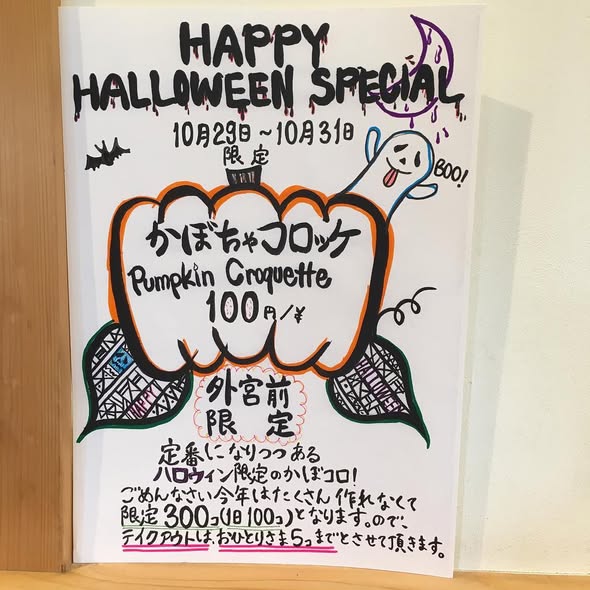 HAPPY
HALLOWEEN SPECIAL
10月29日〜10月31日
限定
BOO!
かぼちゃコロッケ
Pumpkin Croquette
100円/¥
HAPPY
HALLOWEEN
外宮前
限定
定番になりつつある
ハロウィン限定のかぼコロ!
ごめんなさい今年はたくさん作れなくて
限定300コ(1日100コ)となります。ので、
テイクアウトは、おひとりさま5コまでとさせて頂きます。